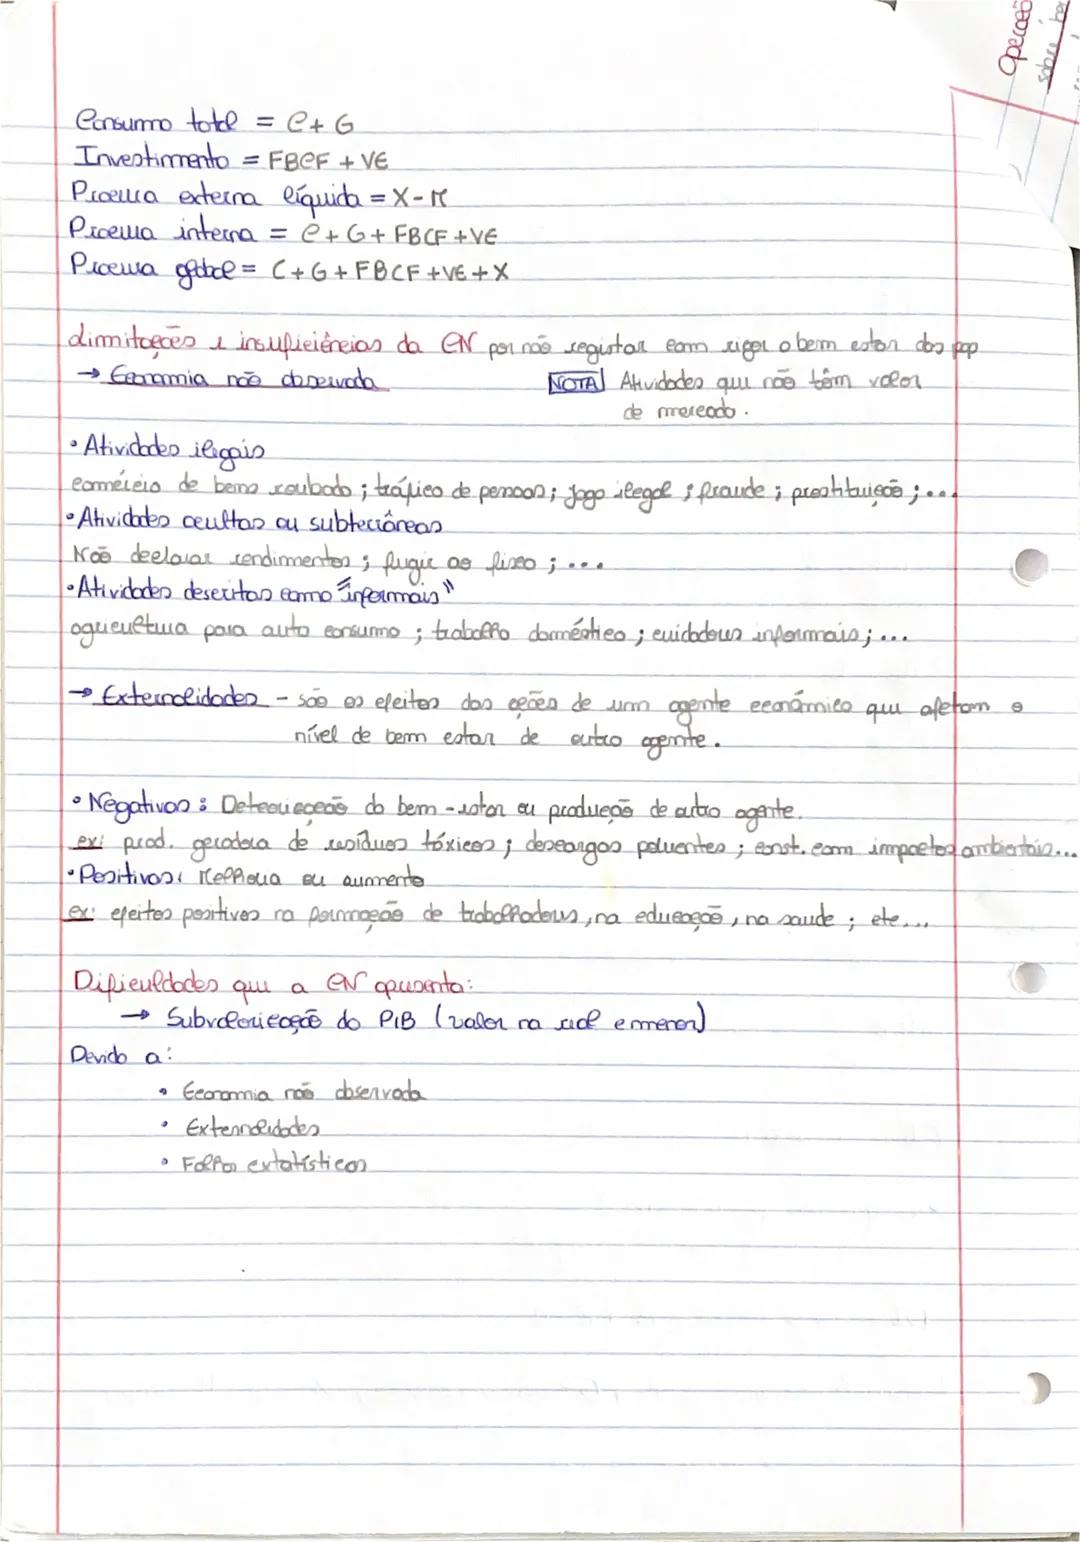 Consumo total = C + G
Investimento = FBCF + VE
Procura externa líquida = X - M
Procura interna = C + G + FBCF + VE
Procura global = C + G + FBCF + VE + X
Limitações e insuficiências da CN por não registar com rigor o bem estar das pop
→ Economia não observada
NOTA Atividades que não têm valor
de mercado.
• Atividades ilegais
comércio de bens roubado ; tráfico de pessoas ; jogo ilegal ; fraude ; prostituição ; ...
• Atividades ocultas ou subterrâneas
Não declarar rendimentos ; fugir ao fisco ; ...
• Atividades descritas como "informais"
agricultura para auto consumo ; trabalho doméstico ; cuidadores informais ; ...
→ Externalidades - são os efeitos das ações de um agente económico que afetam o
nível de bem estar de outro agente.
• Negativas : Deterioração do bem-estar ou produção de outro agente.
ex: prod. geradora de resíduos tóxicos ; descargas poluentes ; const. com impactos ambientais...
• Positivas: Melhoria ou aumento
ex: efeitos positivos na formação de trabalhadores, na educação, na saude ; etc...
Dificuldades que a CN apresenta:
→ Subvalorização do PIB (valor na real e menor)
Devido a:
• Economia não observada
• Externalidades
• Falhas estatísticas
Operaçõe
sobre be